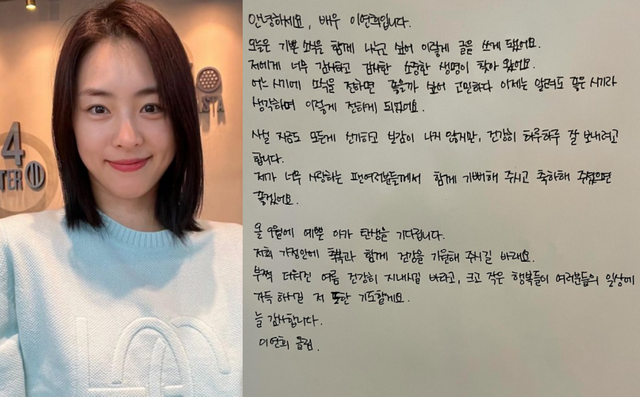 4
TER
STA
안녕하세요, 배우 이연희입니다.
오늘은 기쁜 소식을 함께 나누고 싶어 이렇게 글을 쓰게 됐어요.
저에게 너무 감사하고 감사한 소중한 생명이 찾아 왔어요.
어느 시기에 소식을 전하면 좋을까 싶어 고민하다 이제는 알려도 좋은 시기라
생각하며 이렇게 전하게 되었어요.
사실 지금도 모든게 신기하고 실감이 나지 않지만, 건강히 하루하루 잘 보내려고
합니다.
제가 너무 사랑하는 팬여러분들께서 함께 기뻐해 주시고 축하해 주셨으면
좋겠어요.
올 9월에 예쁜 아가 탄생을 기다립니다.
저희 가정안에 축복과 함께 건강을 기원해 주시길 바래요.
부쩍 더워진 여름 건강히 지내시길 바라고, 크고 작은 행복들이 여러분들의 일상에
가득 하시길 저 또한 기도할게요.
늘 감사합니다.
이연희 올림.